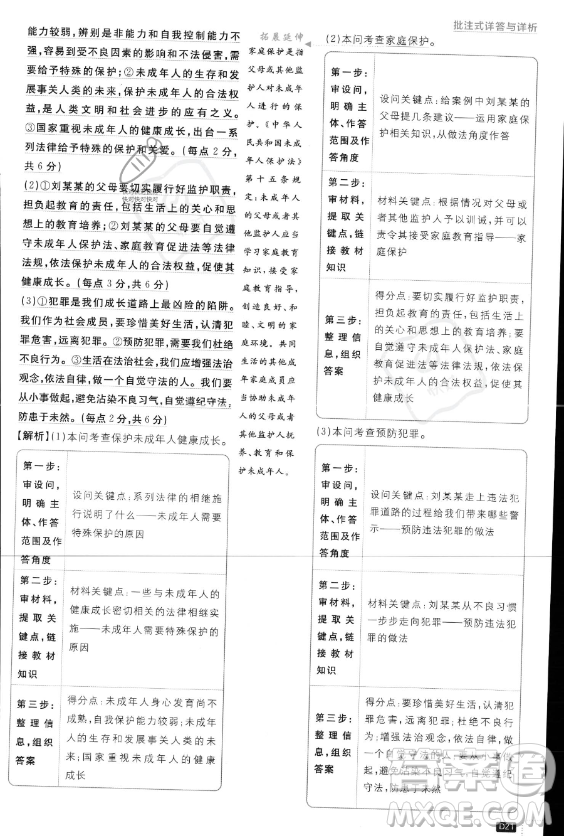 批注式详答与详析
能力较弱，辨别是非能力和自我控制能力不
强，容易受不良因素的影响和不法侵害，需要
给予特殊的保护；②未成年人的生存和发
展事关人类的未来，对未成年人给予特殊保
护，是人类文明和社会进步的应有之义。
③国家重视未成年人的健康成长，出台一系
列法律给予特殊的保护和关爱。（每点2分，
共6分）
(2)①刘某某的父母要切实履行好监护职责，
担负起教育的责任，包括生活上的关心和思
想上的教育培养；②刘某某的父母要自觉遵
守未成年人保护法、家庭教育促进法等法律
法规，依法保护未成年人的合法权益，促使其
健康成长。（每点3分，共6分）
(3)①犯罪是我们成长道路上最凶险的陷阱。
我们作为社会成员，要珍惜美好生活，认清犯
罪危害，远离犯罪。②生活在法治社会，我们
要杜绝不良行为。③我们应增强法治
观念，依法自律，做一个自觉守法的人。我们要
从小事做起，避免沾染不良习气，自觉遵纪守法，
防患于未然。（每点2分，共6分）
【解析】(1)本问考查保护未成年人健康成长。
第一步：
审设问，
明确主
体、作答
范围及作
答角度
设问关键点：系列法律的相继施
行说明了什么——未成年人需要
特殊保护的原因
第二步：
审材料，
提取关
键点，链
接教材
知识
材料关键点：一些与未成年人的
健康成长密切相关的法律相继实
施——未成年人需要特殊保护的
原因
第三步：
整理信
息，组织
答案
得分点：未成年人身心发育尚不
成熟，自我保护能力较弱；未成年
人的生存和发展事关人类的未
来；国家重视未成年人的健康
成长
拓展延伸
家庭保护是指
父母或其他监
护人对未成年
人进行的保
护。《中华人
民共和国未成
年人保护法》
第十五条规
定，未成年人
的父母或者其
他监护人应当
学习家庭教育
知识，接受家
庭教育指导，
创造良好、和
睦、文明的家
庭环境。共同
生活的其他成
年家庭成员应
当协助未成年
人的父母或者
其他监护人抚
养、教育和保
护未成年人。
(2)本问考查家庭保护。
第一步：
审设问，
明确主
体、作答
范围及作
答角度
设问关键点：给案例中刘某某的
父母提几条建议——运用家庭保
护相关知识，从做法角度作答
第二步：
审材料，
提取关
键点，链
接教材
知识
材料关键点：根据情况对父母或
者其他监护人予以训诫，并可以
责令其接受家庭教育指导——家
庭保护
第三步：
整理信
息，组织
答案
得分点：要切实履行好监护职责，
担负起教育的责任，包括生活上
的关心和思想上的教育培养；要
自觉遵守未成年人保护法、家庭
教育促进法等法律法规，依法保
护未成年人的合法权益，促使其
健康成长
(3)本问考查预防犯罪。
第一步：
审设问，
明确主
体、作答
范围及作
答角度
设问关键点：刘某某走上违法犯
罪道路的过程给我们带来哪些警
示——预防违法犯罪的做法
第二步：
审材料，
提取关
键点，链
接教材
知识
材料关键点：刘某某从不良习惯
一步步走向犯罪——预防违法犯
罪的做法
第三步：
整理信
息，组织
答案
得分点：要珍惜美好生活，认清犯
罪危害，远离犯罪；杜绝不良行
为；增强法治观念，依法自律，做一个
自觉守法的人；从小事做起，
避免沾染不良习气，自觉遵纪守法，
防患于未然
D21
答案圈
MXQE.COM